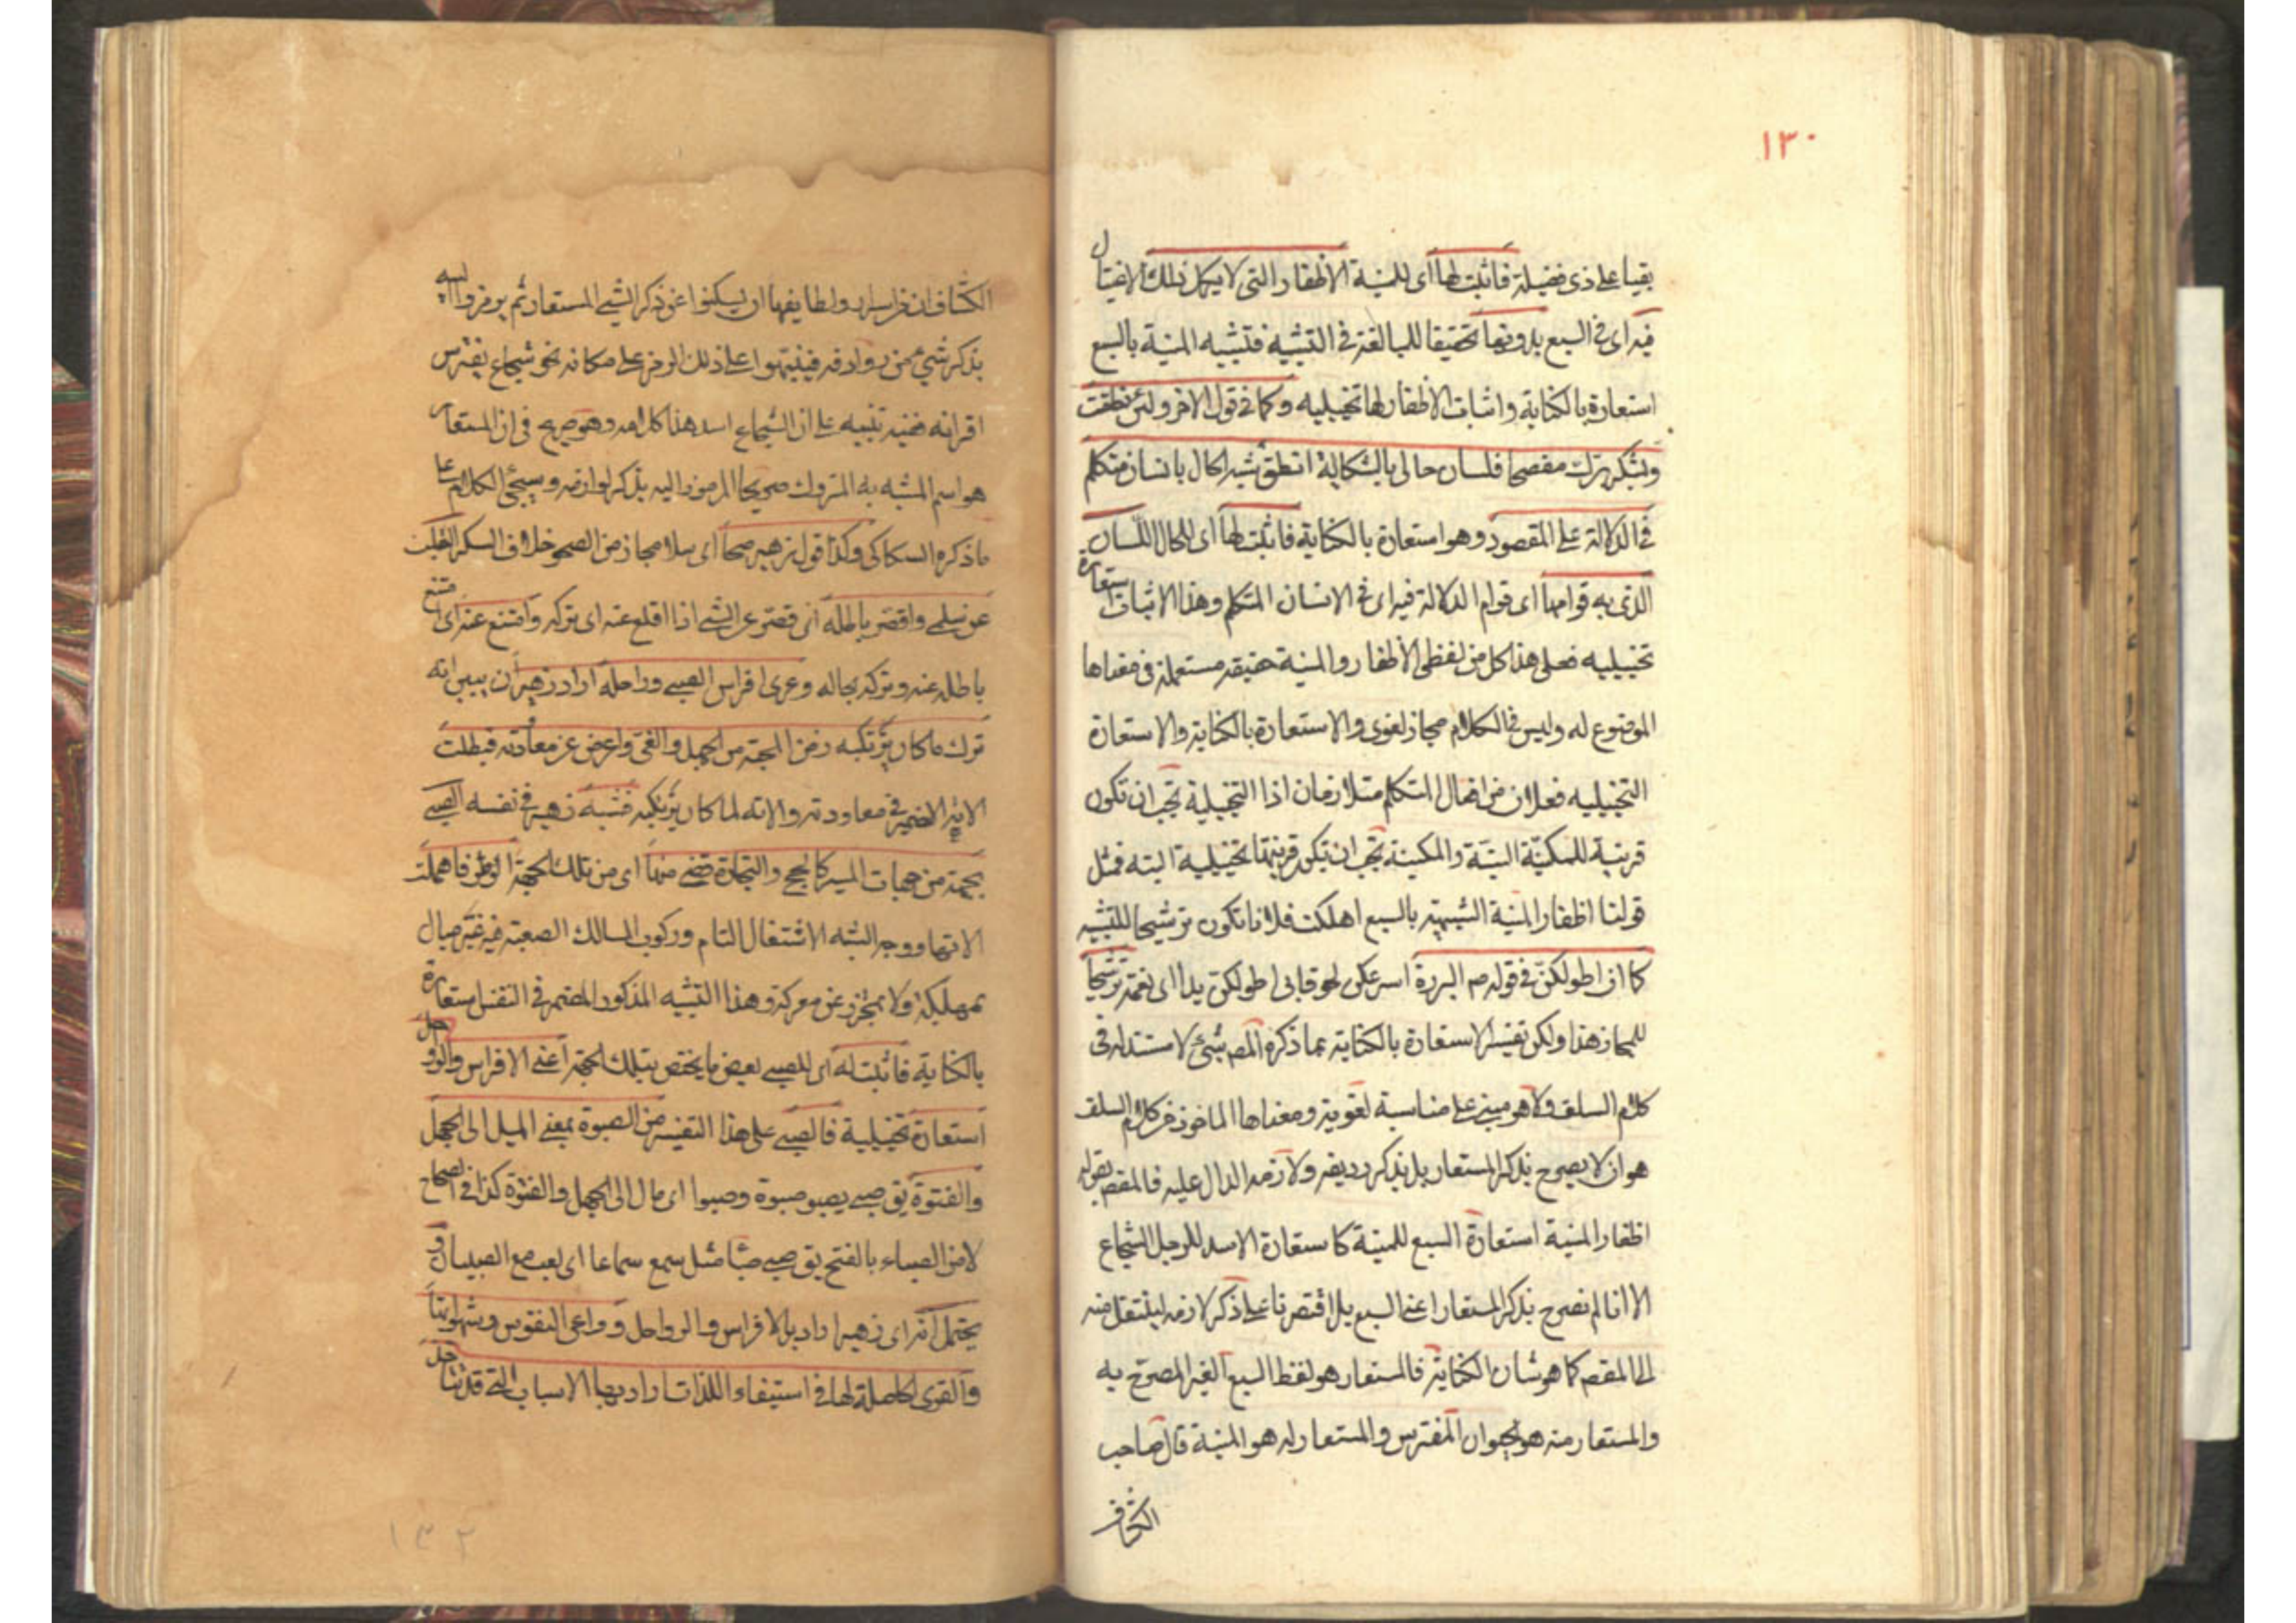 ١٣٠
بقيا على ذى فضيلة فاثبت لها اى للمنية الاظفار التى لا يكمل ذلك الاغتيال
فيه اى فى السبع بدونها تحقيقا للمبالغة فى التشبيه فتشبيه المنية بالسبع
استعارة بالكناية واثبات الاظفار لها تخييلية وكما فى قول الاخر ولئن نطقت
وبشكر برك مفصحا فلسان حالى بالشكاية انطق شبه الحال بانسان متكلم
فى الدلالة على المقصود وهو استعارة بالكناية فاثبت لها اى للحال اللسان
الذى به قوامها اى قوام الدلالة فيه اى فى الانسان المتكلم وهذا الاثبات استعارة
تخييلية فعلى هذا كل من لفظى الاظفار والمنية حقيقة مستعملة فى معناها
الموضوع له وليس فى الكلام مجاز لغوى والاستعارة بالكناية والاستعارة
التخييلية فعلان من افعال المتكلم متلازمان اذا التخييلية يجب ان تكون
قرينة للمكنية البتة والمكنية يجب ان تكون قرينتها تخييلية البته فمثل
قولنا اظفار المنية الشبيهة بالسبع اهلكت فلانا تكون ترشيحا للتشبيه
كما ان اطولكن فى قوله صم البررة اسرعكن لحوقا بى اطولكن يدا اى نعمة ترشيحا
للمجاز هذا ولكن تفسير الاستعارة بالكناية بما ذكره المص شئ لا مستند له فى
كلام السلف ولا هو مبنى على مناسبة لغوية ومعناها الماخوذ من كلام السلف
هو ان لا يصرح بذكر المستعار بل بذكر رديفه ولازمه الدال عليه فالمقصم بقوله
اظفار المنية استعارة السبع للمنية كاستعارة الاسد للرجل الشجاع
الا انا لم نصرح بذكر المستعار اعنى السبع بل اقتصرنا على ذكر لازمه لينتقل منه
الى المقصم كما هو شان الكناية فالمستعار هو لفظ السبع الغير المصرح به
والمستعار منه هو الحيوان المفترس والمستعار له هو المنية قال صاحب
الكشاف
الكشاف ان من اسرار ولطايفها ان يسكتوا عن ذكر الشئ المستعار ثم يرمزوا اليه
بذكر شئ من روادفه فينبهوا على ذلك الرمز على مكانه نحو شجاع يفترس
اقرانه ففيه تنبيه على ان الشجاع اسد هذا كلامه وهو صريح فى ان المستعار
هو اسم المشبه به المتروك صريحا المرموز اليه بذكر لوازمه وسيجئ الكلام على
ما ذكره السكاكى وكذا قول زهير صحا اى سلا مجاز من الصحو خلاف السكر القلب
عن سلمى واقصر باطله اى قصر عن الشئ اذا اقلع عنه اى تركه وامتنع عنه اى امتنع
باطله عنه وتركه بحاله وعرى افراس الصبى ورواحله اراد زهير ان يبين انه
ترك ما كان يرتكبه زمن المحبة من الجهل والغى واعرض عن معاودته فبطلت
الاته الضمير فى معاودته والاته لما كان يرتكبه فشبه زهير فى نفسه الصبى
بجهة من جهات المسير كالحج والتجارة قضى منها اى من تلك الجهة الوطر فاهملت
الاتها ووجه الشبه الاشتغال التام وركوب المسالك الصعبة فيه غير مبال
بمهلكة ولا محترز عن معركة وهذا التشبيه المذكور المضمر فى النفس استعارة
بالكناية فاثبت له اى للصبى بعض ما يختص بتلك الجهة اعنى الافراس والرواحل
استعارة تخييلية فالصبى على هذا التفسير من الصبوة بمعنى الميل الى الجهل
والفتوة يق صبى يصبو صبوة وصبوا اى مال الى الجهل والفتوة كذا فى الصحاح
لا من الصباء بالفتح يق صبى صبا مثل سمع سماعا اى لعب مع الصبيان و
يحتمل انه اى زهيرا اراد بالافراس والرواحل دواعى النفوس وشهواتها
والقوى الحاصلة لها فى استيفاء اللذات او اراد بها الاسباب التى قلما
١٣٢